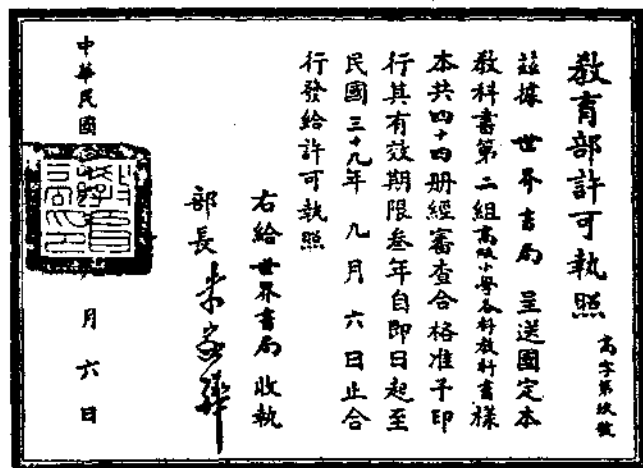 教育部許可執照
高字第玖號
茲據 世界書局 呈送國定本
教科書第二組高級小學各科教科書樣
本共四十四册經審查合格准予印
行其有效期限叁年自即日起至
民國三十九年 九月 六日止合
行發給許可執照
右給世界書局收執
部長 朱家驊
中華民國
月六日